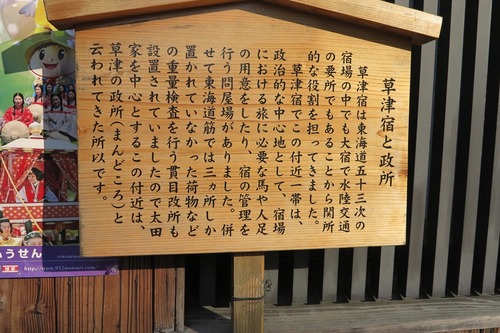 草津宿と政所
草津宿は東海道五十三次の
宿場の中でも大宿で水陸交通
の要所でもあることから関所
的な役割を担ってきました。
草津宿でこの付近一帯は、
政治的な中心地として、宿場
における旅に必要な馬や人足
の用意をしたり、宿の管理を
行う問屋場がありました。併
せて東海道筋では三ヵ所しか
置かれていなかった荷物など
の重量検査を行う貫目改所も
設置されていましたので太田
家を中心とするこの付近は、
草津の政所（まんどころ）と
云われてきた所以です。